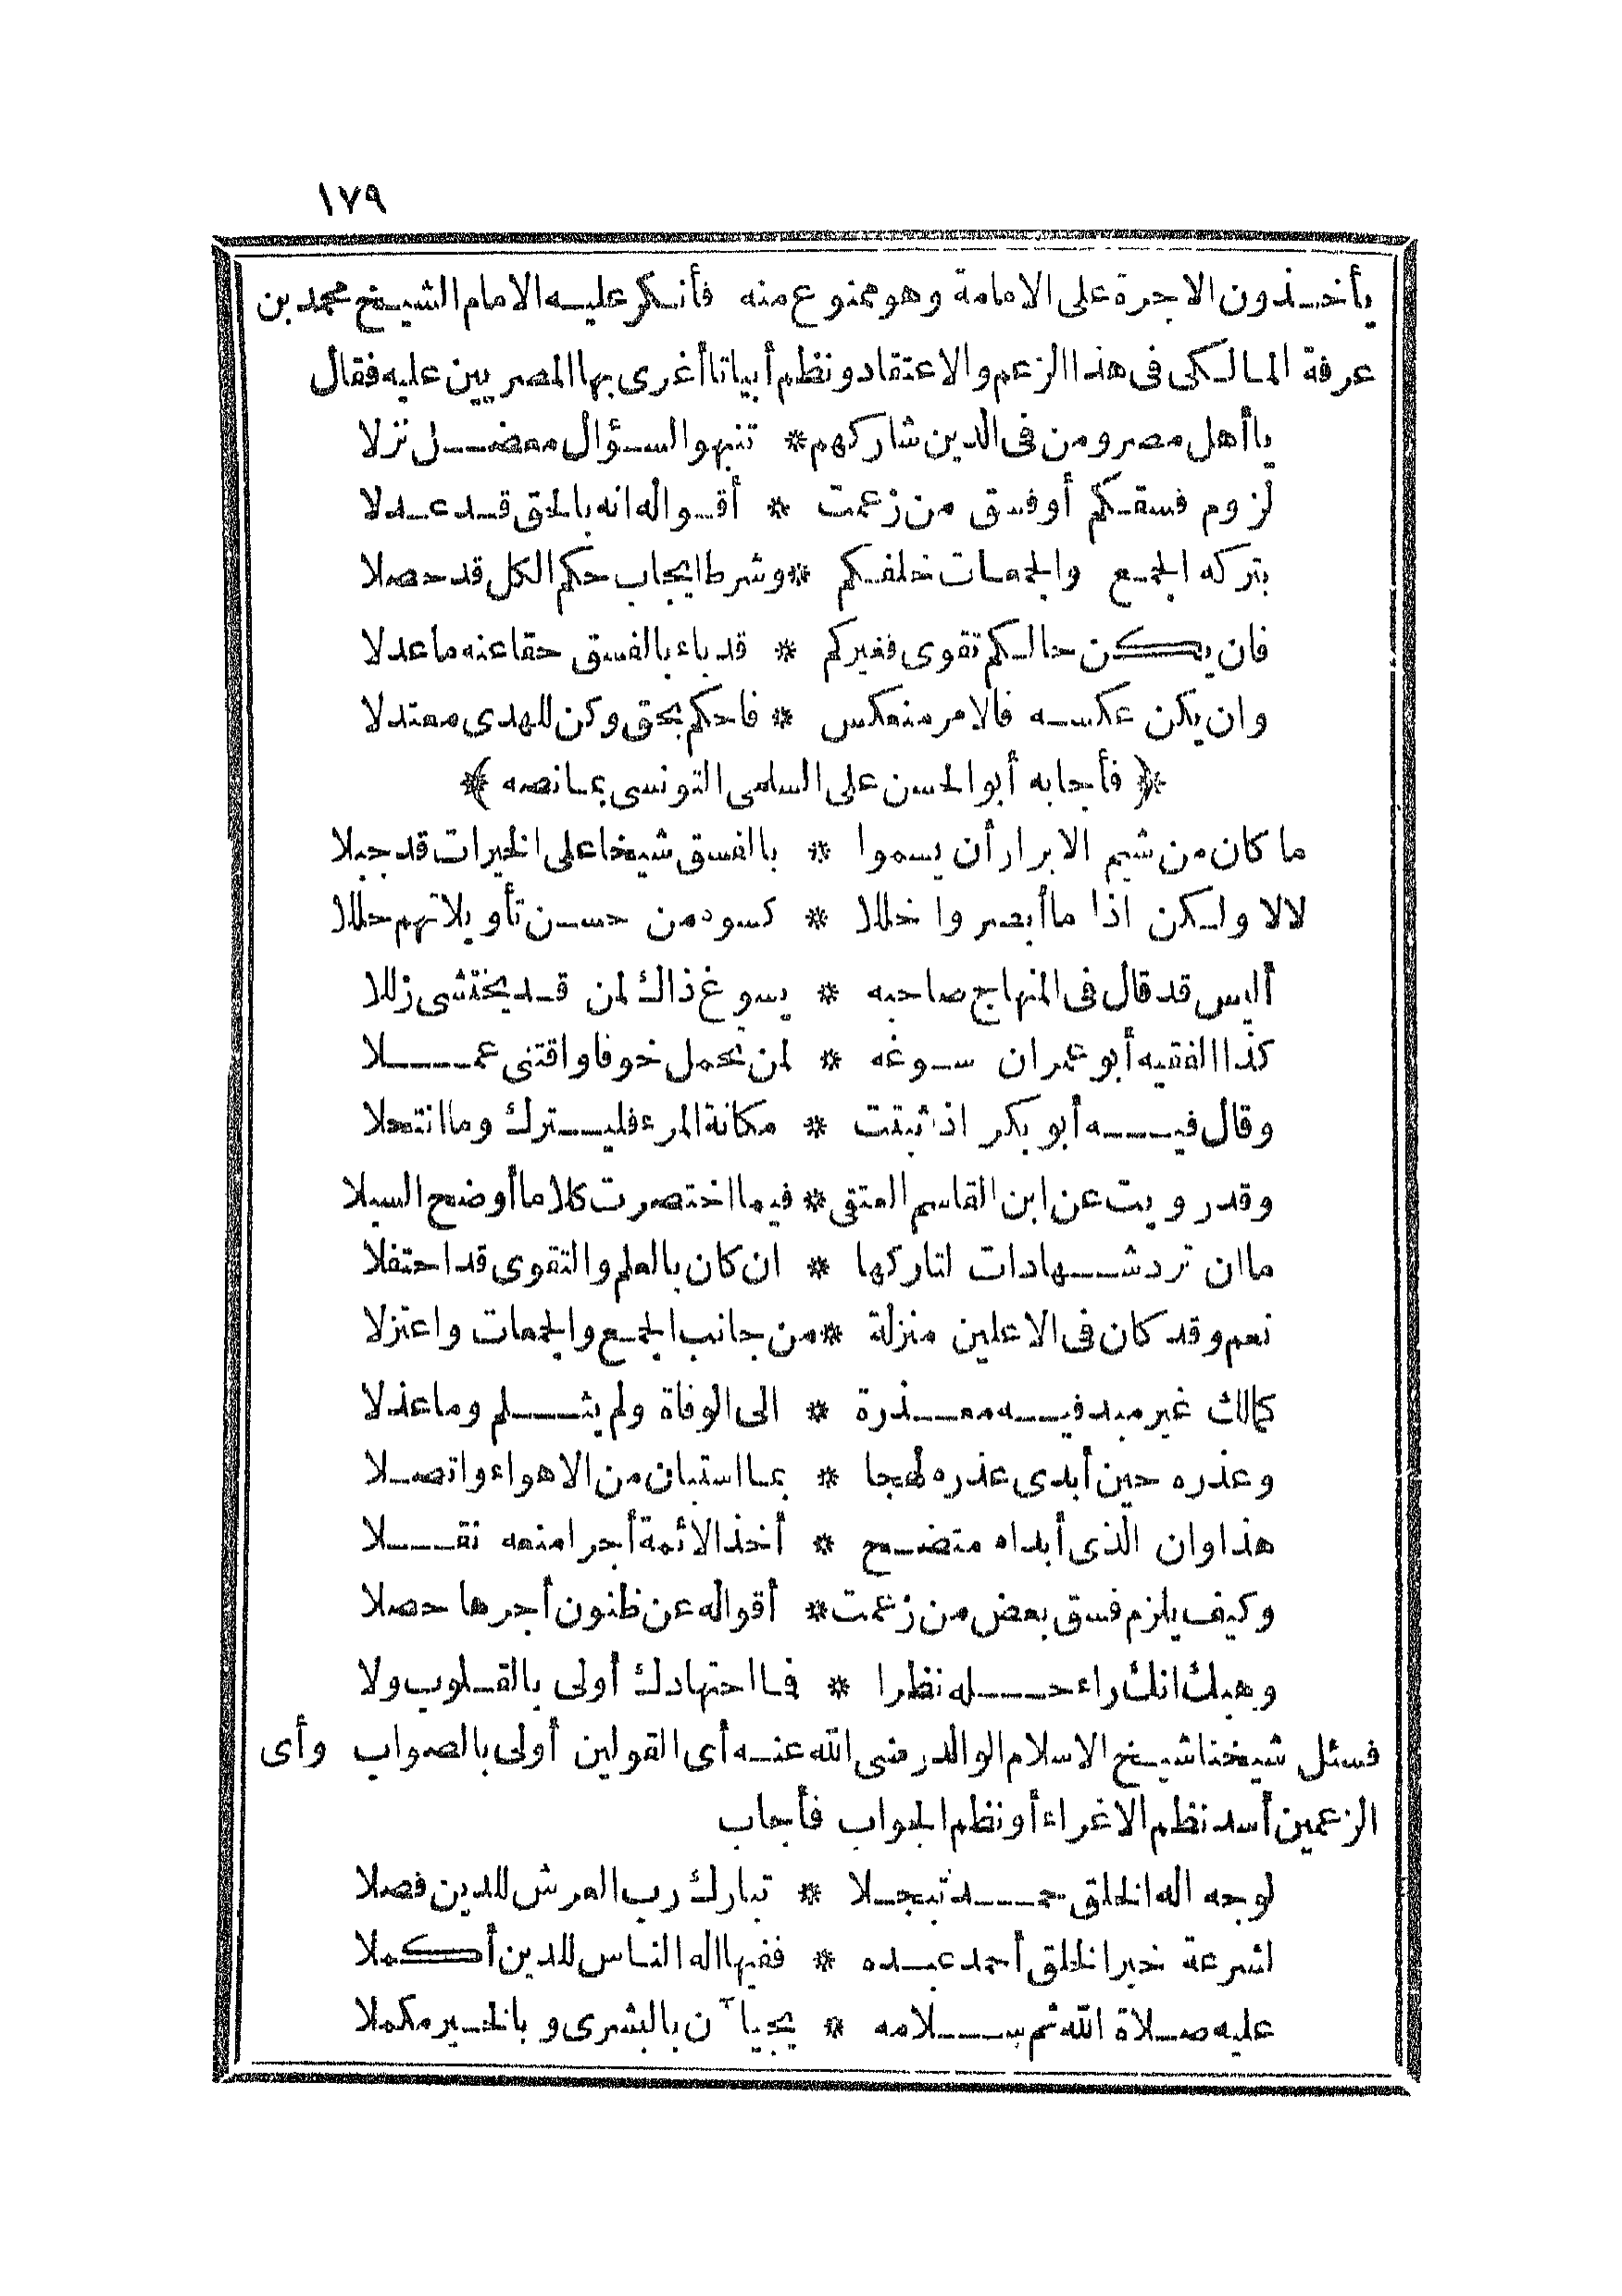 ١٧٩
يأخذون الاجرة على الامامة وهو ممنوع منه فأنكر عليه الامام الشيخ محمد بن
عرفة المالكى فى هذا الزعم والاعتقاد ونظم أبياتا أغرى بها المصريين عليه فقال
ياأهل مصر ومن فى الدين شاركهم * تنبهوا لسؤال معضل نزلا
لزوم فسقكم أو فسق من زعمت * أقواله انه بالحق قد عدلا
بتركه الجمع والجمعات خلفكم * وشرط ايجاب حكم الكل قد حصلا
فان يكن حالكم تقوى فغيركم * قد باء بالفسق حقا عنه ما عدلا
وان يكن عكسه فالامر منعكس * فاحكم بحق وكن للهدى معتدلا
﴿ فأجابه أبو الحسن على السلمى التونسى بما نصه ﴾
ما كان من شيم الابرار أن يسموا * بالفسق شيخا على الخيرات قد جبلا
لالا ولكن اذا ما أبصروا خللا * كسوه من حسن تأويلاتهم حللا
أليس قد قال فى المنهاج صاحبه * يسوغ ذاك لمن قد يختشى زللا
كذا الفقيه أبو عمران سوغه * لمن تحمل خوفا واقتنى عملا
وقال فيه أبو بكر اذ ثبتت * مكانة المرء فليترك وما انتحلا
وقد رويت عن ابن القاسم العتقى * فيما اختصرت كلاما أوضح السبلا
ما ان ترد شهادات لتاركها * ان كان بالعلم والتقوى قد احتفلا
نعم وقد كان فى الاعلين منزلة * من جانب الجمع والجمعات واعتزلا
كمالك غير مبد فيه معذرة * الى الوفاة ولم يثلم وما عذلا
وعذره حين أبدى عذره لهجا * بما استبان من الاهواء واتصلا
هذا وان الذى أبداه متضح * أخذ الائمة أجرا منعه نقلا
وكيف يلزم فسق بعض من زعمت * أقواله عن ظنون أجرها حصلا
وهبك انك راء حله نظرا * فما اجتهادك أولى بالقلوب ولا
فسئل شيخنا شيخ الاسلام الوالد رضى الله عنه أى القولين أولى بالصواب وأى
الزعمين أسد نظم الاغراء أو نظم الجواب فأجاب
لوجه اله الخلق حمد تبجلا * تبارك رب العرش للدين فصلا
لشرعة خير الخلق أحمد عبده * ففيها اله الناس للدين أكملا
عليه صلاة الله ثم سلامه * يجيآن بالبشرى وبالخير مكملا